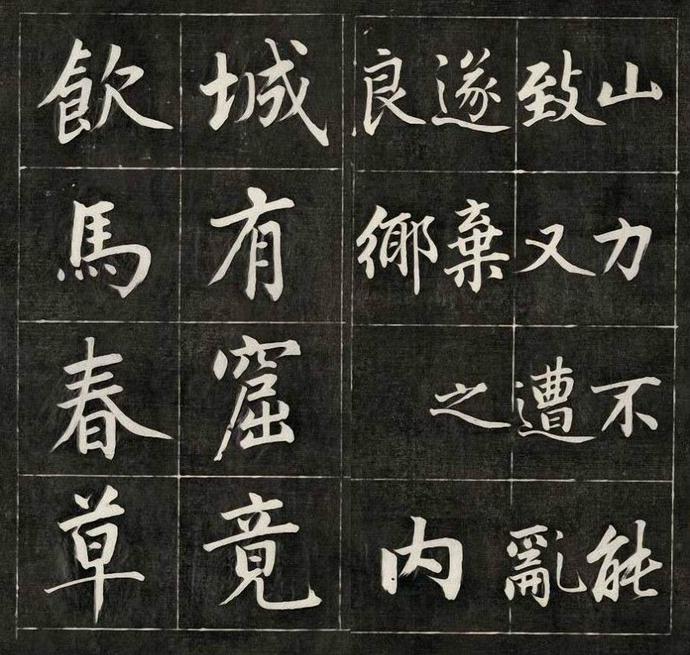 山力不能
致又遭亂
遂棄之内
良鄉
城有窟竟
飲馬春草